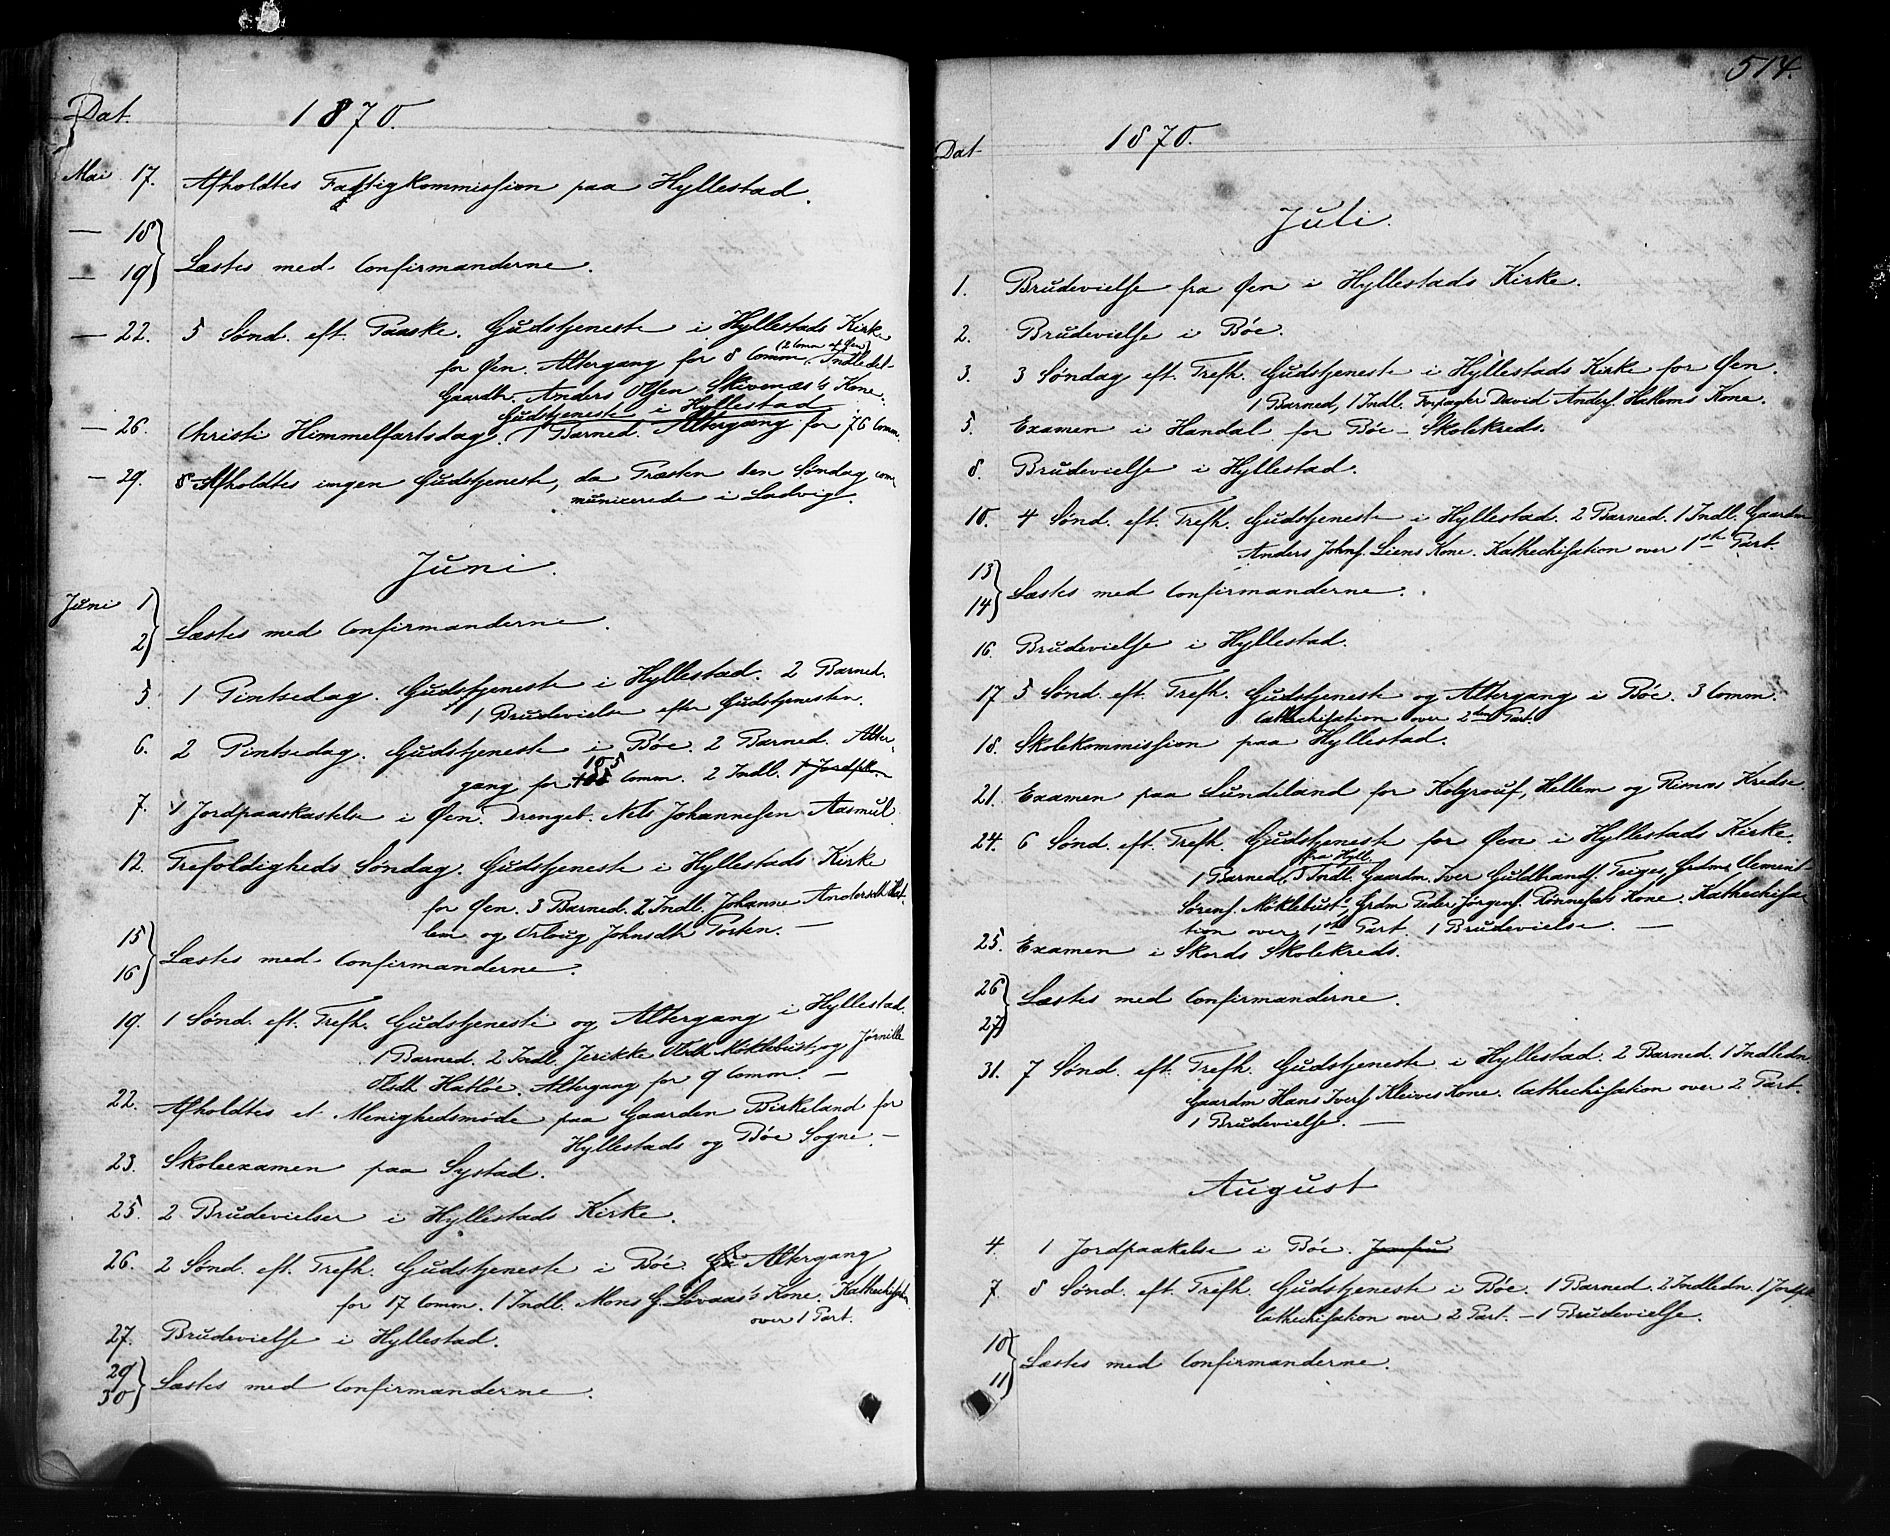 Dat. 1870.
Mai 17. Afholdtes Fattigkommission paa Hyllestad.
— 18
— 19 } Læstes med Confirmanderne.
— 22. 5 Sønd. eft. Paaske. Gudstjeneste i Hyllestads Kirke
(2 Comm af Øen)
for Øen. Altergang for 8 Comm. Indledet
Gaardbr. Anders Olsen Skivenæs's Kone.
Gudstjeneste i Hyllestad
— 26. Christi Himmelfartsdag. 1 Barned. Altergang for 76 Comm.
— 29. Afholdtes ingen Gudstjeneste, da Præsten den Søndag com-
municerede i Ladvig.
Juni.
Juni 1
2 } Læstes med Confirmanderne.
5 1 Pintsedag. Gudstjeneste i Hyllestad. 2 Barned.
1 Brudevielse efter Gudstjenesten.
6. 2 Pintsedag. Gudstjeneste i Bøe. 2 Barned. Alter-
105
gang for Comm. 2 Indl. 1 Jordpk.
7. 1 Jordpaaskastelse i Øen. Drengeb. Nils Johannesen Aasmul.
12. Trefoldigheds Søndag. Gudstjeneste i Hyllestads Kirke
for Øen. 3 Barned. 2 Indl. Johanne Andersdtr Hel-
lem og Johnsdtr Porten. —
15
16 } Læstes med Confirmanderne.
19. 1 Sønd. eft. Trefh. Gudstjeneste og Altergang i Hyllestad.
1 Barned. 2 Indl. Jerikke Olsdtr Møklebust, og Jørnille
Olsdtr Hatløe. Altergang for 9 Comm. —
22. Afholdtes et Menighedsmøde paa Gaarden Birkeland for
Hyllestads og Bøe Sogne. —
23. Skoleexamen paa Systad.
25. 2 Brudevielser i Hyllestads Kirke.
26. 2 Sønd. eft. Trefh. Gudstjeneste i Bøe. Altergang
for 17 Comm. 1 Indl. Mons G. Løvaas's Kone. Kathechisation
over 1 Part.
27. Brudevielse i Hyllestad.
29
30 } Læstes med Confirmanderne.
514.
Dat 1870.
Juli.
1. Brudevielse fra Øen i Hyllestads Kirke.
2. Brudevielse i Bøe.
3. 3 Søndag eft. Trefh. Gudstjeneste i Hyllestads Kirke for Øen.
1 Barned, 1 Indl. Forpagter David Anders. Hakoms Kone.
5. Examen i Handal for Bøe-Skolekreds.
8. Brudevielse i Hyllestad.
10. 4 Sønd. eft. Trefh. Gudstjeneste i Hyllestad. 2 Barned. 1 Indl. Gaardm
Anders Johns. Liens Kone. Kathechisation over 1ste Part.
13
14 } Læstes med Confirmanderne.
16. Brudevielse i Hyllestad.
17 5 Sønd. eft. Trefh. Gudstjeneste og Altergang i Bøe. 3 Comm.
Cathechisation over 2den Part.
18. Skolekommission paa Hyllestad.
21. Examen paa Lundeland for Kolgrouf, Hellem og Risnes Kredse
24. 6 Sønd. eft. Trefh. Gudstjeneste for Øen i Hyllestads Kirke.
fra Hyll.
1 Barned, 3 Indl. Gaardm. Iver Guldbrands. Grdm Clement
Sørens. Møklebust, Grdm Peder Jørgens. Rønnesets Kone. Kathechisa-
tion over 1ste Part. 1 Brudevielse. —
25. Examen i Skords Skolekreds.
26
27 } Læstes med Confirmanderne.
31. 7 Sønd. eft. Trefh. Gudstjeneste i Hyllestad. 2 Barned. 1 Indledn.
Gaardm Hans Ivers Kleives Kone. Cathechisation over 2 Part.
1 Brudevielse. —
August
4. 1 Jordpaakelse i Bøe. Jomfru
7. 8 Sønd. eft. Trefh. Gudstjeneste i Bøe. 1 Barned. 2 Indledn. 1 Jordpk
Cathechisation over 2 Part. — 1 Brudevielse.
10
11 } Læstes med Confirmanderne.